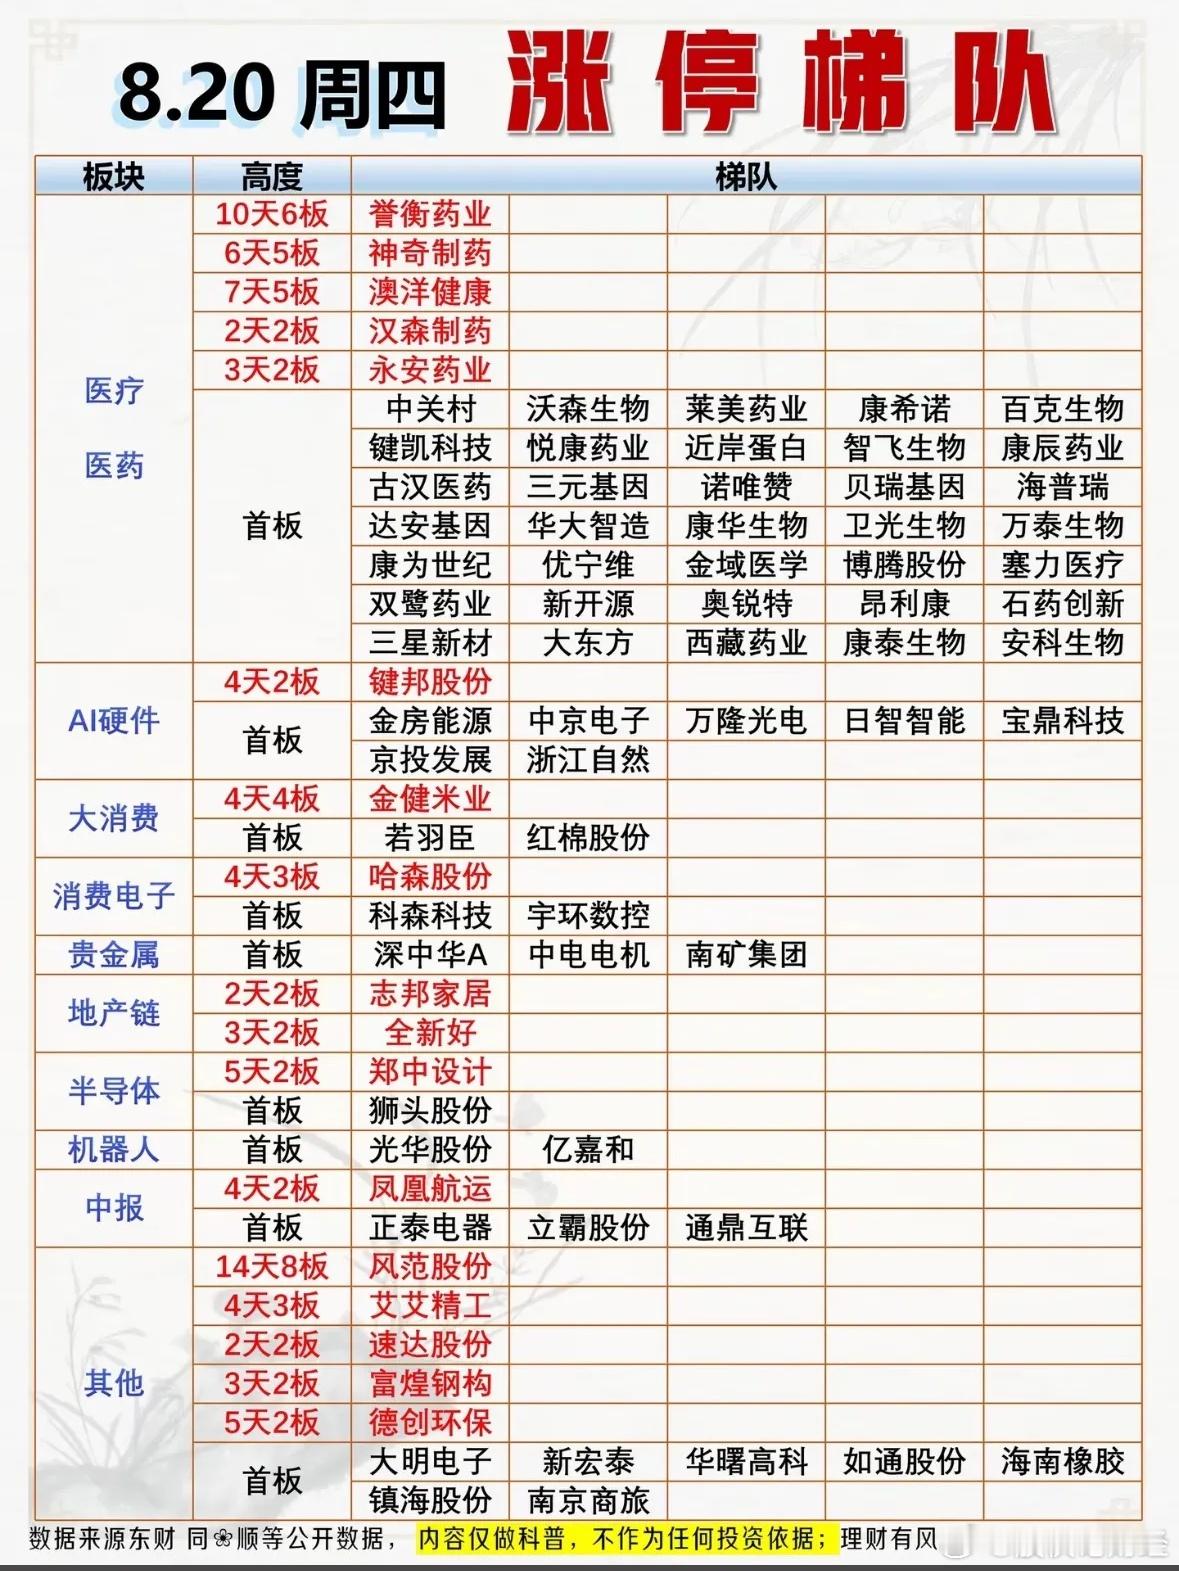 8.20 周四 涨停梯队
板块 高度 梯队
医疗 医药
10天6板 誉衡药业
6天5板 神奇制药
7天5板 澳洋健康
2天2板 汉森制药
3天2板 永安药业
首板
中关村 沃森生物 莱美药业 康希诺 百克生物
键凯科技 悦康药业 近岸蛋白 智飞生物 康辰药业
古汉医药 三元基因 诺唯赞 贝瑞基因 海普瑞
达安基因 华大智造 康华生物 卫光生物 万泰生物
康为世纪 优宁维 金域医学 博腾股份 塞力医疗
双鹭药业 新开源 奥锐特 昂利康 石药创新
三星新材 大东方 西藏药业 康泰生物 安科生物
AI硬件
4天2板 键邦股份
首板
金房能源 中京电子 万隆光电 日智智能 宝鼎科技
京投发展 浙江自然
大消费
4天4板 金健米业
首板 若羽臣 红棉股份
消费电子
4天3板 哈森股份
首板 科森科技 宇环数控
贵金属 首板 深中华A 中电电机 南矿集团
地产链
2天2板 志邦家居
3天2板 全新好
半导体
5天2板 郑中设计
首板 狮头股份
机器人 首板 光华股份 亿嘉和
中报
4天2板 凤凰航运
首板 正泰电器 立霸股份 通鼎互联
其他
14天8板 风范股份
4天3板 艾艾精工
2天2板 速达股份
3天2板 富煌钢构
5天2板 德创环保
首板
大明电子 新宏泰 华曙高科 如通股份 海南橡胶
镇海股份 南京商旅
数据来源东财 同❀顺等公开数据，内容仅做科普，不作为任何投资依据；理财有风